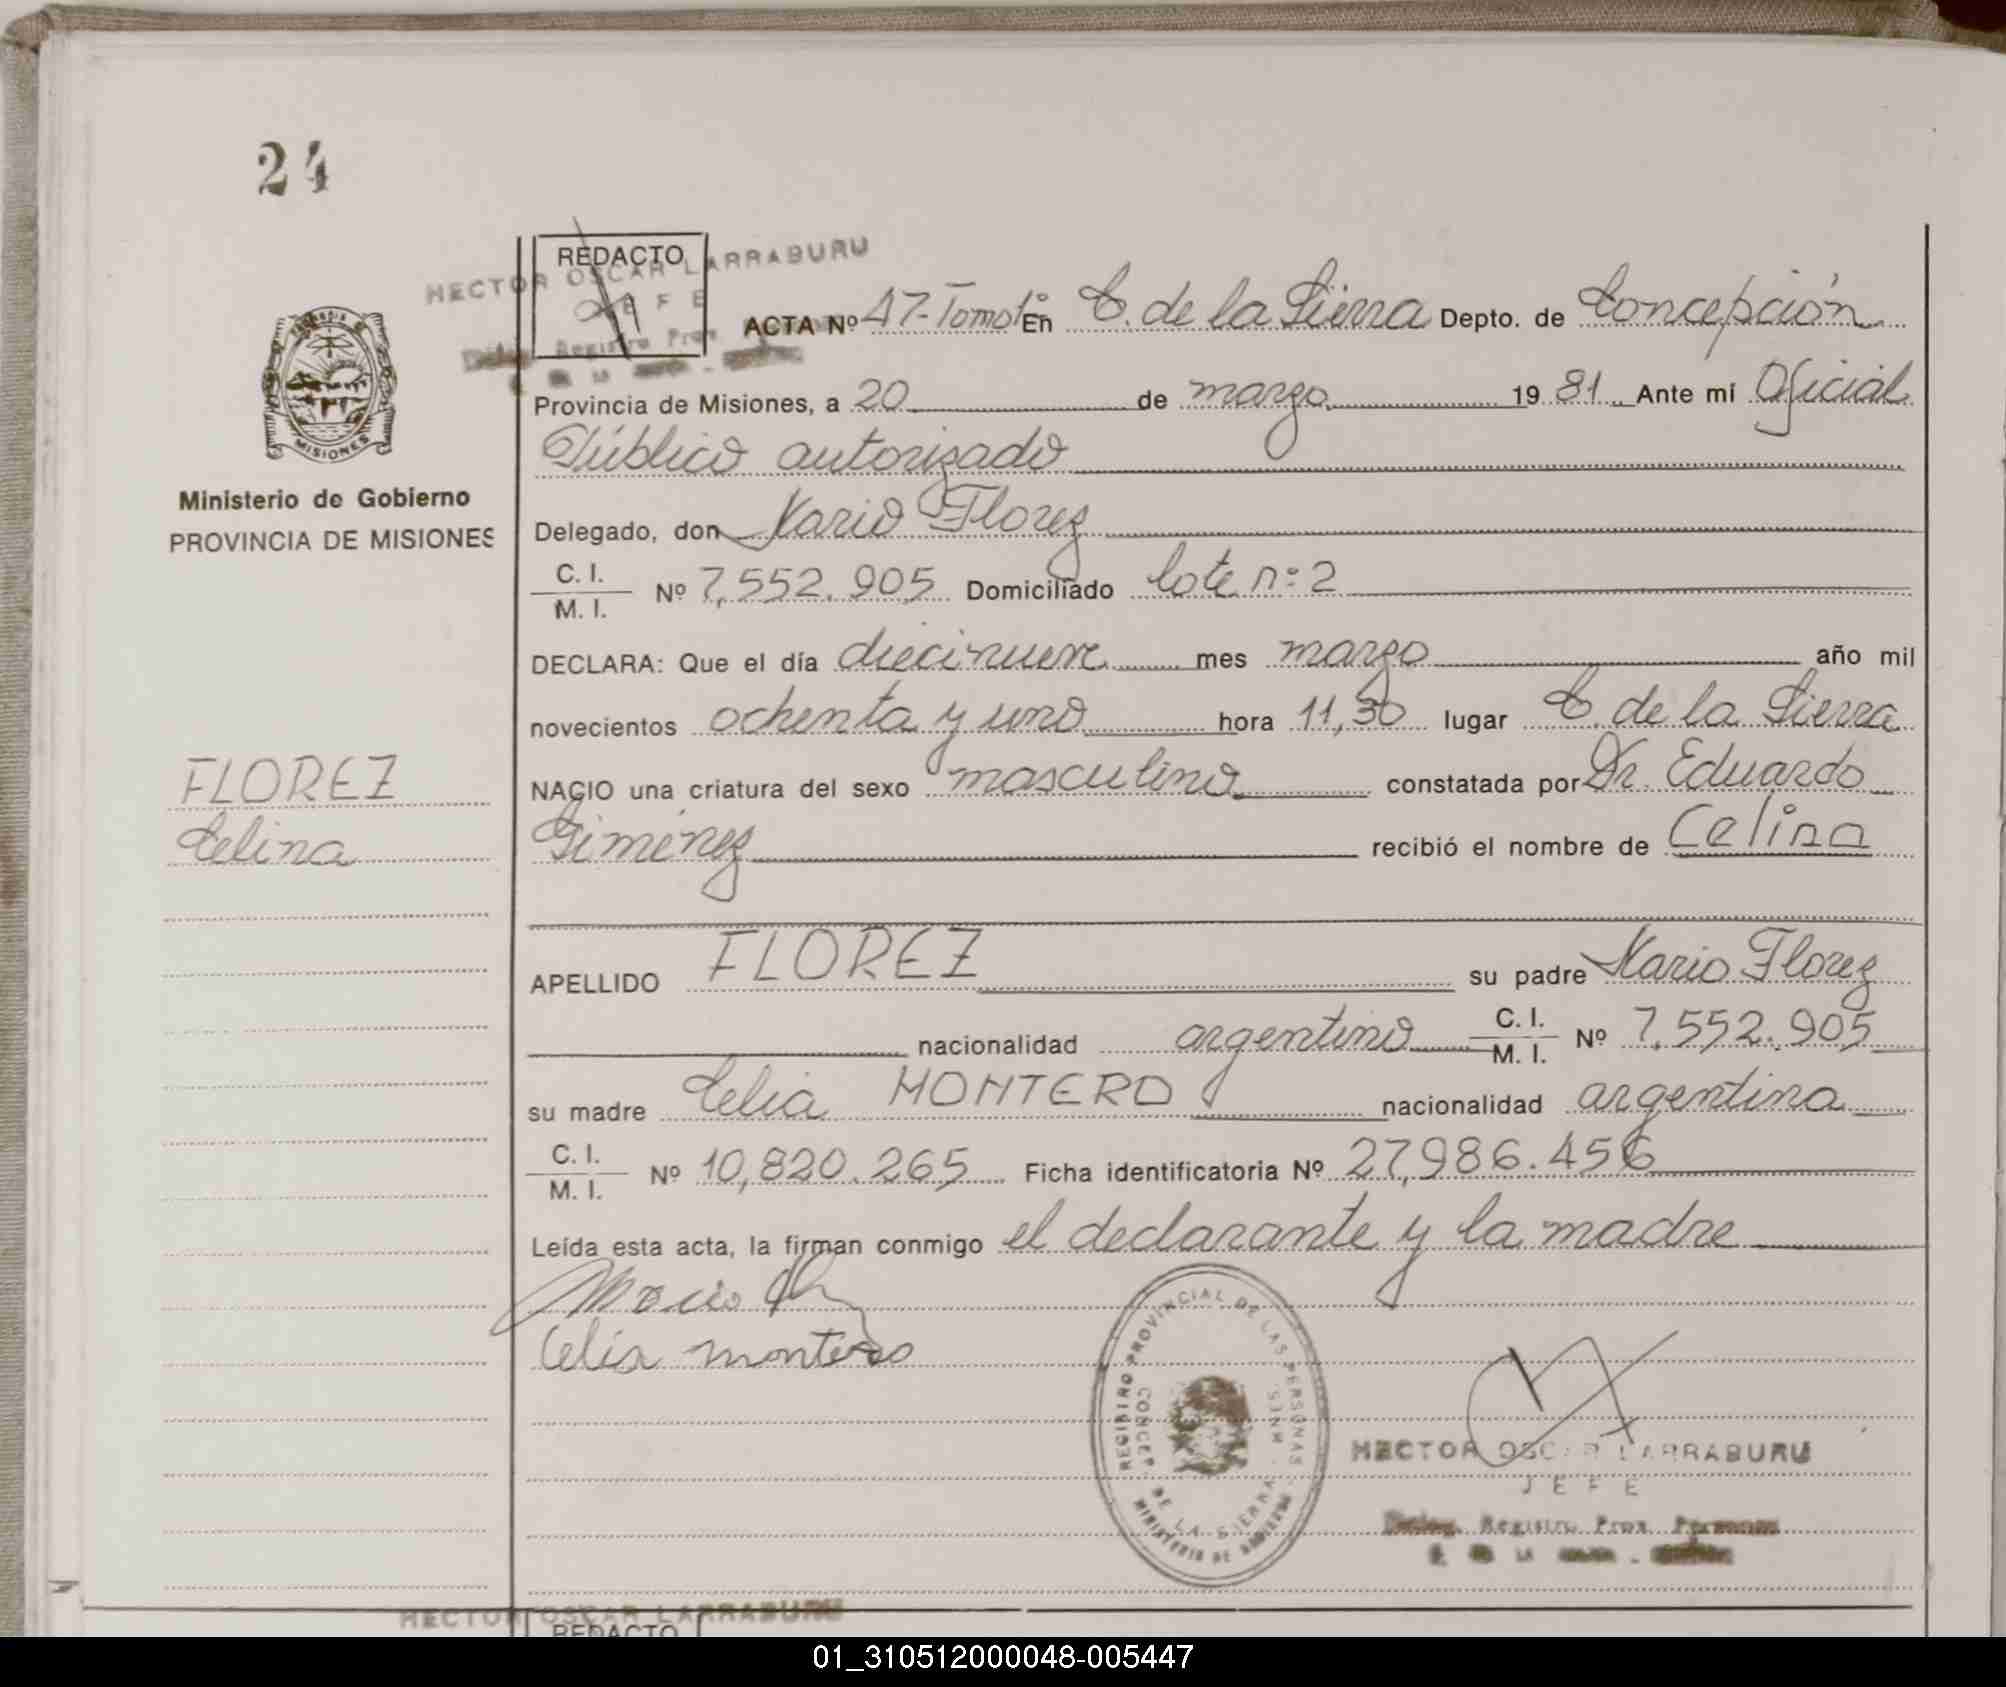 24
REDACTO
HECTOR OSCAR LARRABURU
JEFE
Registro Prov.
ACTA Nº 47-Tomo 1º En C. de la Sierra Depto. de Concepción
Provincia de Misiones, a 20 de marzo 19 81 Ante mí Oficial
Público autorizado
MISIONES
Ministerio de Gobierno
PROVINCIA DE MISIONES
Delegado, don Mario Florez
C. I.
M. I. Nº 7,552.905 Domiciliado lote nº 2
DECLARA: Que el día diecinueve mes marzo año mil
novecientos ochenta y uno hora 11,30 lugar C. de la Sierra
FLOREZ
Celina
NACIO una criatura del sexo masculino constatada por Dr. Eduardo
Giménez recibió el nombre de Celina
APELLIDO FLOREZ su padre Mario Florez
nacionalidad argentino C. I. M. I. Nº 7,552.905
su madre Celia MONTERO nacionalidad argentina
C. I.
M. I. Nº 10,820.265 Ficha identificatoria Nº 27,986.456
Leída esta acta, la firman conmigo el declarante y la madre
Celia montero
REGISTRO PROVINCIAL DE LAS PERSONAS
CONCEP. DE LA SIERRA - MNES.
MINISTERIO DE GOBIERNO
HECTOR OSCAR LARRABURU
JEFE
Deleg. Registro Prov. Personas
HECTOR OSCAR LARRABURU
REDACTO
01_310512000048-005447